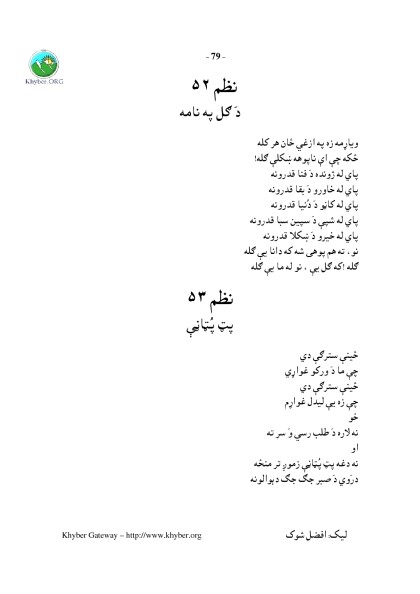 - 79 -
Khyber.ORG
نظم ۵۲
دَ ګل په نامه
وياړمه زه په ازغي ځان هر کله
ځکه چې اې ناپوهه ښکلي ګله!
پاي له ژونده دَ فنا قدرونه
پاي له خاورو دَ بقا قدرونه
پاي له کاڼو دَ دُنيا قدرونه
پاي له شپې دَ سپين سبا قدرونه
پاي له خيرو دَ ښکلا قدرونه
نو، ته هم پوهی شه که دانا يې ګله
ګله !که ګل يې ، نو له ما يې ګله
نظم ۵۳
پټ پُټاڼې
ځينې سترګې دي
چې ما دَ ورکو غواړي
ځينې سترګې دي
چې زه يې ليدل غواړم
خو
نه لاره دَ طلب رسي وَ سر ته
او
نه دغه پټ پُټاڼې زموږ تر منځه
دروي دَ صبر جګ جګ دېوالونه
ليک: افضل شوک
Khyber Gateway – http://www.khyber.org